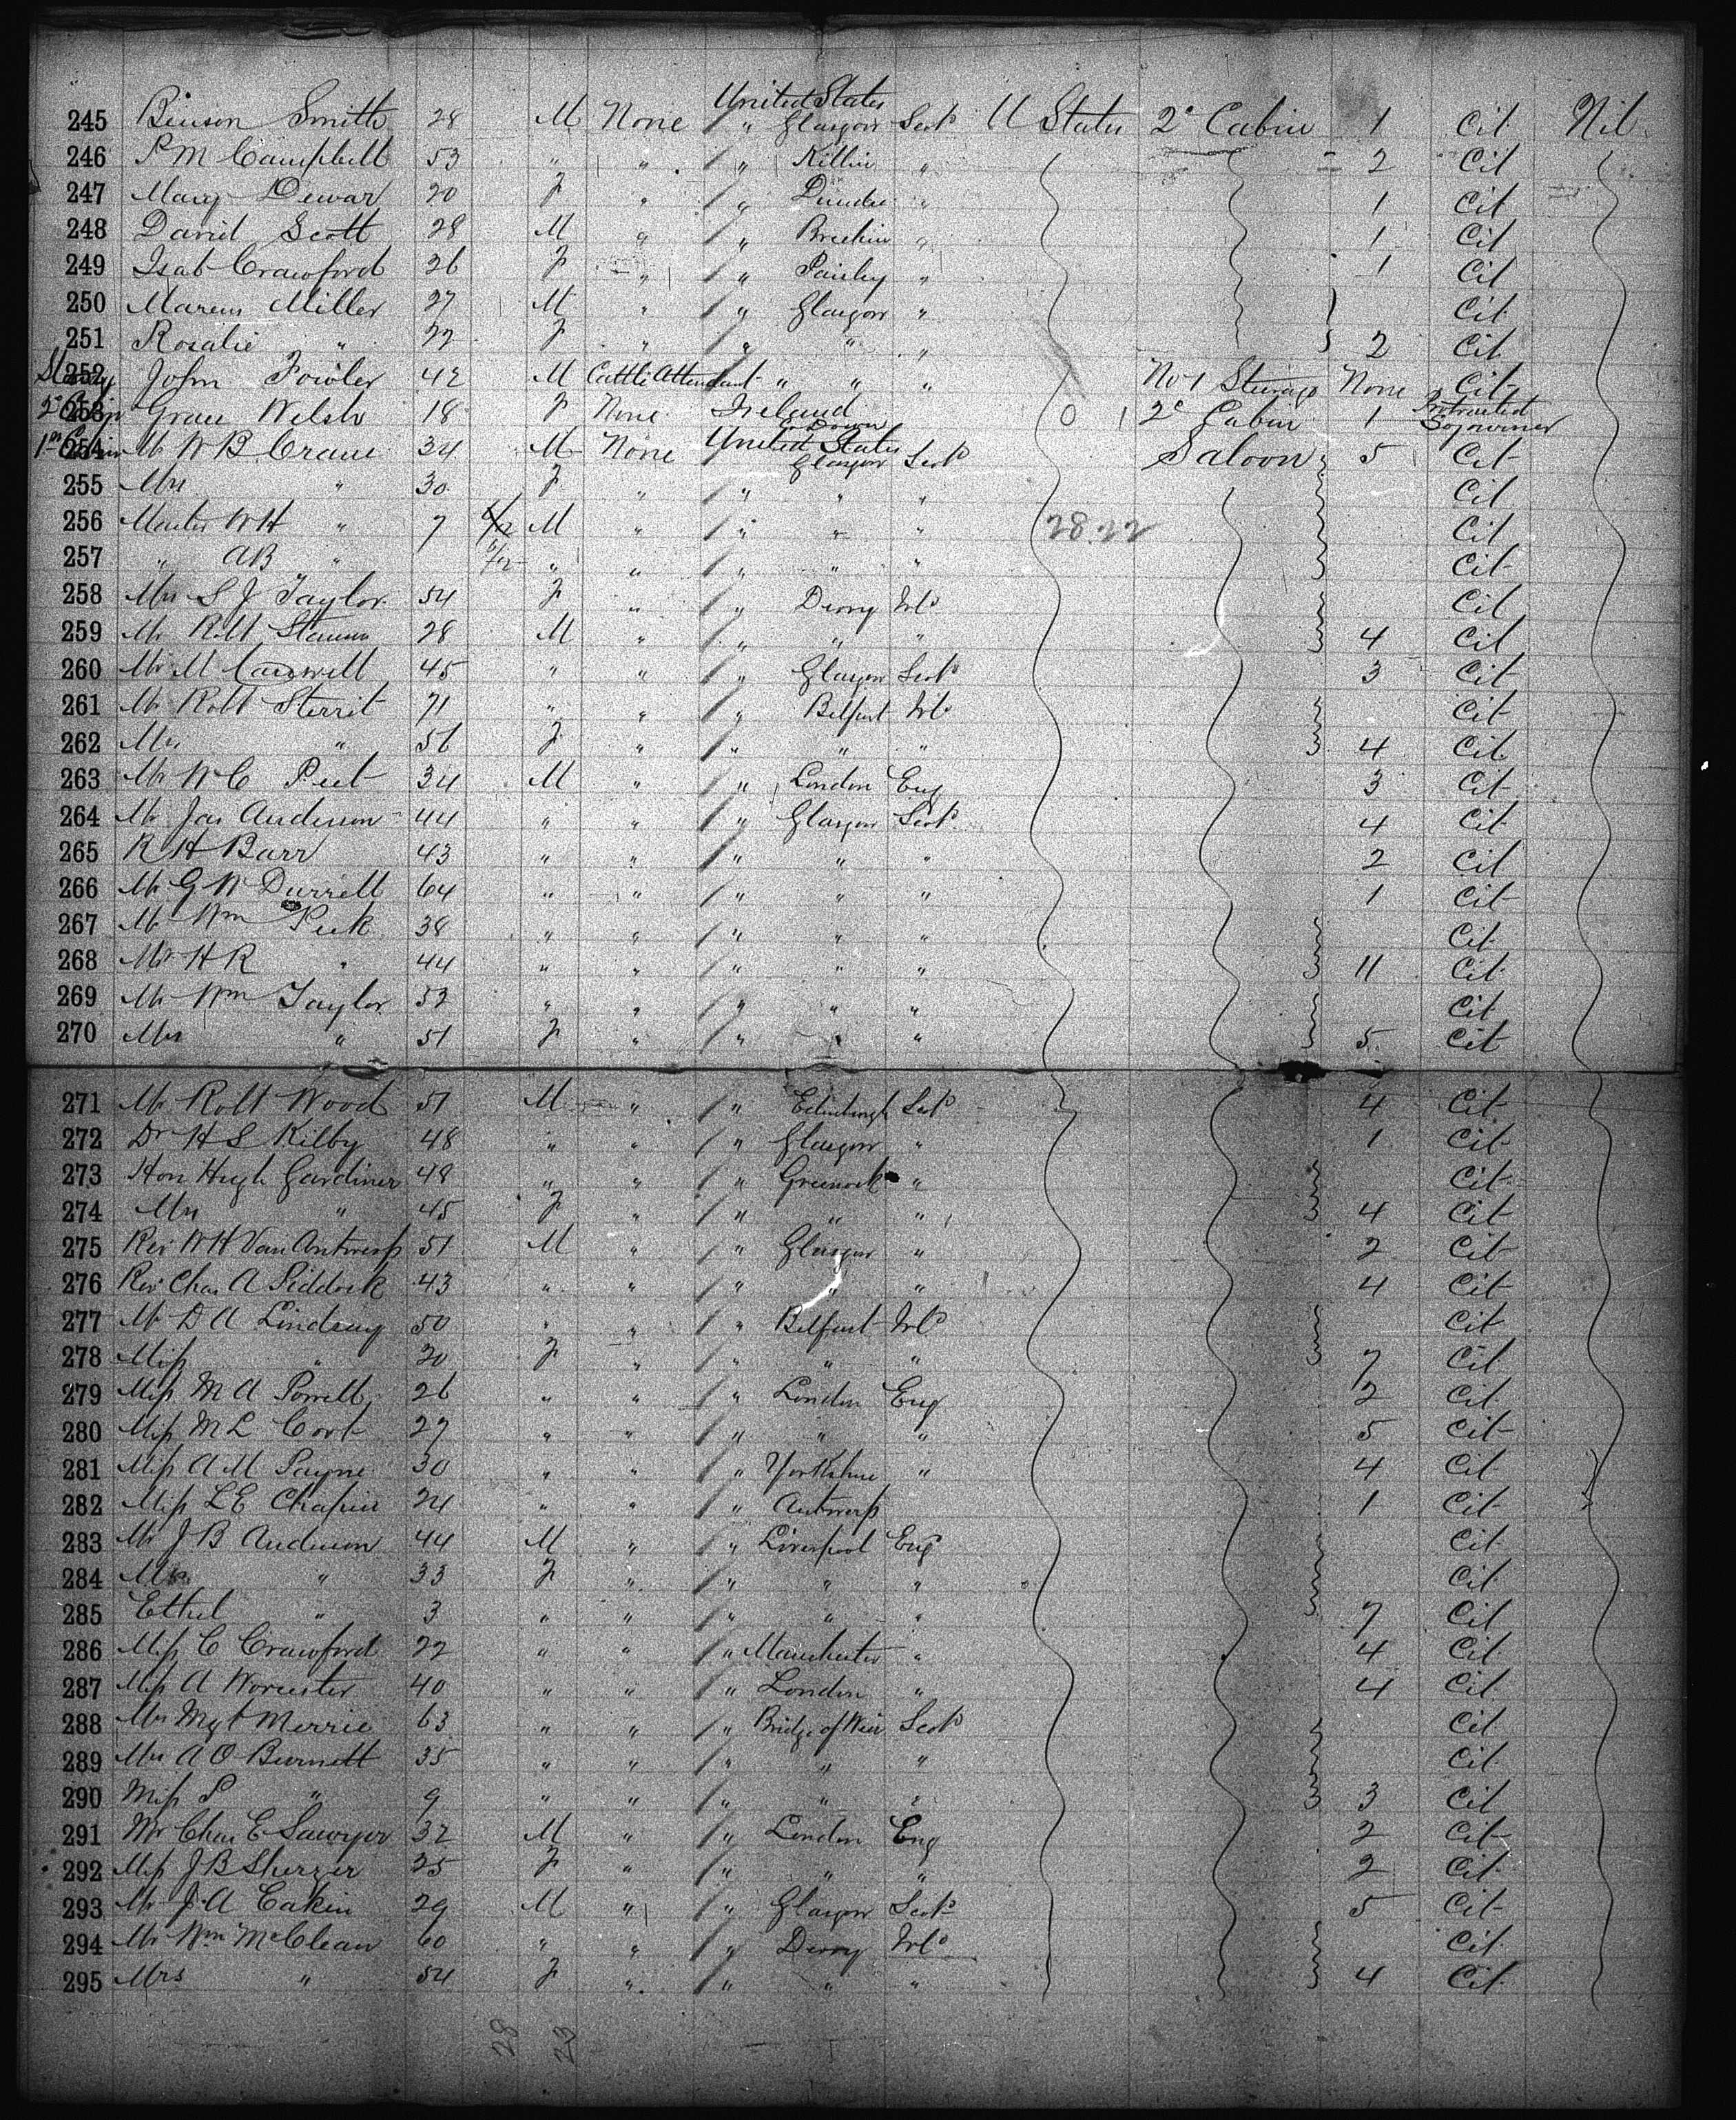 245 Binson Smith 28 M None United States " Glasgow Scotd U States 2d Cabin 1 Cit Nil
246 P M Campbell 53 " " " Killin " 2 Cit
247 Mary Dewar 20 F " " Dundee " 1 Cit
248 David Scott 28 M " " Brechin " 1 Cit
249 Isab Crawford 26 F " " Paisley " 1 Cit
250 Marcus Miller 27 M " " Glasgow " Cit
251 Rosalie " 22 F " " " " 2 Cit
252 John Fowler 42 M Cattle Attendant " " " No 1 Steerage None Cit
2d Cabin 253 Grace Welsh 18 F None Ireland Down 0 2d Cabin 1 Protracted Sojourner
1st Cabin 254 Mr W B Crane 34 M None United States Glasgow Scotd Saloon 5 Cit
255 Mrs " 30 F " " " " Cit
256 Master W H " 7 M " " " " 28.22 Cit
257 " A B " 6/12 " " " " " Cit
258 Mrs S J Taylor 54 F " " Derry Ird Cit
259 Mr Robt 28 M " " " " 4 Cit
260 Mr M Cardwell 45 " " " Glasgow Scotd 3 Cit
261 Mr Robt Sterrit 71 " " " Belfast Ird Cit
262 Mrs " 56 F " " " " 4 Cit
263 Mr W C Peet 34 M " " London Eng 3 Cit
264 Mr Jas Anderson 44 " " " Glasgow Scotd 4 Cit
265 R H Barr 43 " " " " " 2 Cit
266 Mr G W Durrell 64 " " " " " 1 Cit
267 Mr Wm Peek 38 " " " " " Cit
268 Mr H R " 44 " " " " " 11 Cit
269 Mr Wm Taylor 52 " " " " " Cit
270 Mrs " 51 F " " " " 5 Cit
271 Mr Robt Wood 51 M " " Edinburgh Scotd 4 Cit
272 Dr H S Kilby 48 " " " Glasgow " 1 Cit
273 Hon Hugh Gardiner 48 " " " Greenock " Cit
274 Mrs " 45 F " " " " 4 Cit
275 Rev W H Van Antwerp 51 M " " Glasgow " 2 Cit
276 Rev Chas A Piddock 43 " " " " " 4 Cit
277 Mr D A Lindsay 50 " " " Belfast Ird Cit
278 Miss " 20 F " " " " 7 Cit
279 Miss M A Powell 26 " " " London Eng 2 Cit
280 Miss M L Cort 27 " " " " " 5 Cit
281 Miss A M Payne 30 " " " Yorkshire " 4 Cit
282 Miss L E Chapin 24 " " " Antwerp 1 Cit
283 Mr J B Anderson 44 M " " Liverpool Eng Cit
284 Mrs " 33 F " " " " Cit
285 Ethel " 3 " " " " " 7 Cit
286 Miss C Crawford 22 " " " Manchester " 4 Cit
287 Miss A Worcester 40 " " " London " 4 Cit
288 Mrs Mgt Merrie 63 " " " Bridge of Weir Scotd Cit
289 Mrs A O Burnett 35 " " " " " Cit
290 Miss S " 9 " " " " " 3 Cit
291 Mr Chas E Sawyer 32 M " " London Eng 2 Cit
292 Miss J B Sherzer 25 F " " " " 2 Cit
293 Mr J A Eakin 29 M " " Glasgow Scotd 5 Cit
294 Mr Wm McClean 60 " " " Derry Ird Cit
295 Mrs " 54 F " " " " 4 Cit
28 23